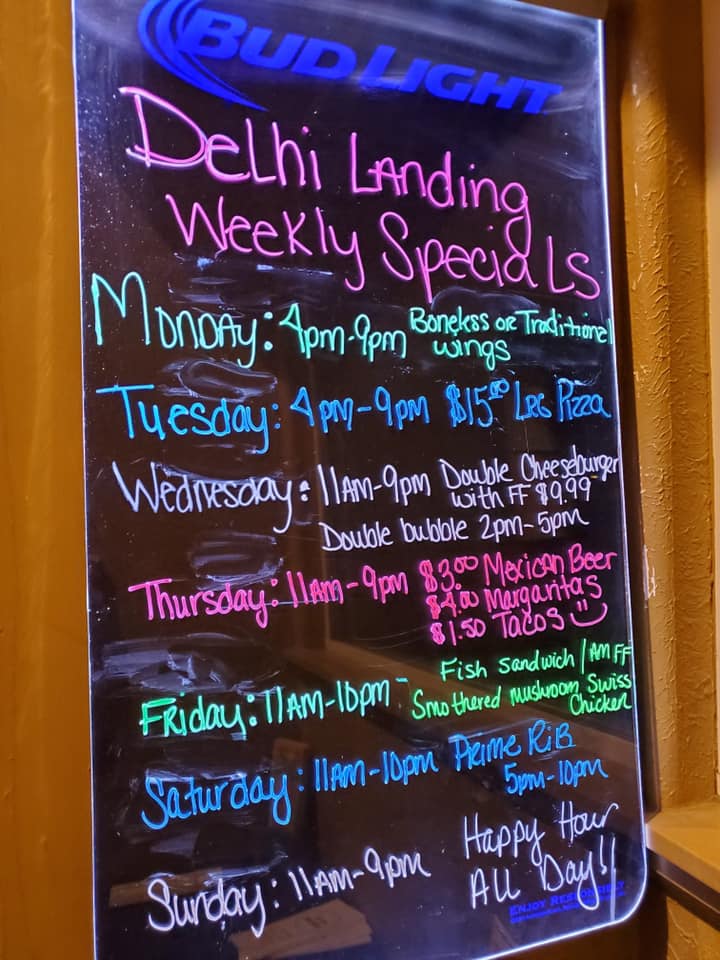 BUD LIGHT
Delhi Landing
Weekly Specials
Monday: 4pm-9pm Boneless or Traditional
wings
Tuesday: 4pm-9pm $15.00 LRG Pizza
Wednesday: 11AM-9pm Double Cheeseburger
with FF $9.99
Double bubble 2pm-5pm
Thursday: 11AM-9pm $3.00 Mexican Beer
$4.00 Margaritas
$1.50 Tacos
Friday: 11AM-10pm- Fish sandwich / AM FF
Smothered mushroom Swiss
Chicken
Saturday: 11AM-10pm Prime Rib
5pm-10pm
Sunday: 11AM-9pm Happy Hour
All Day!!
ENJOY RESPONSIBLY